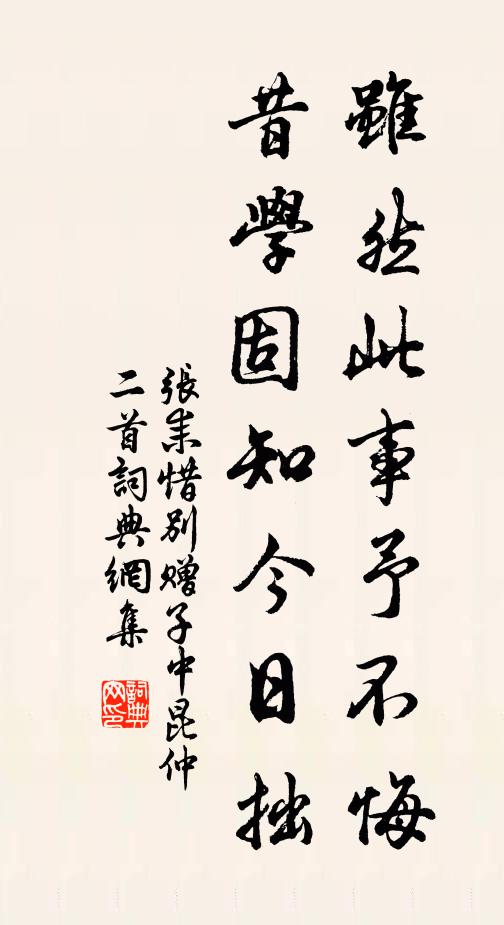 雖然此事予不悔
昔學固知今日拙
張耒惜別贈子中昆仲
二首詞典網集
詞典
网印